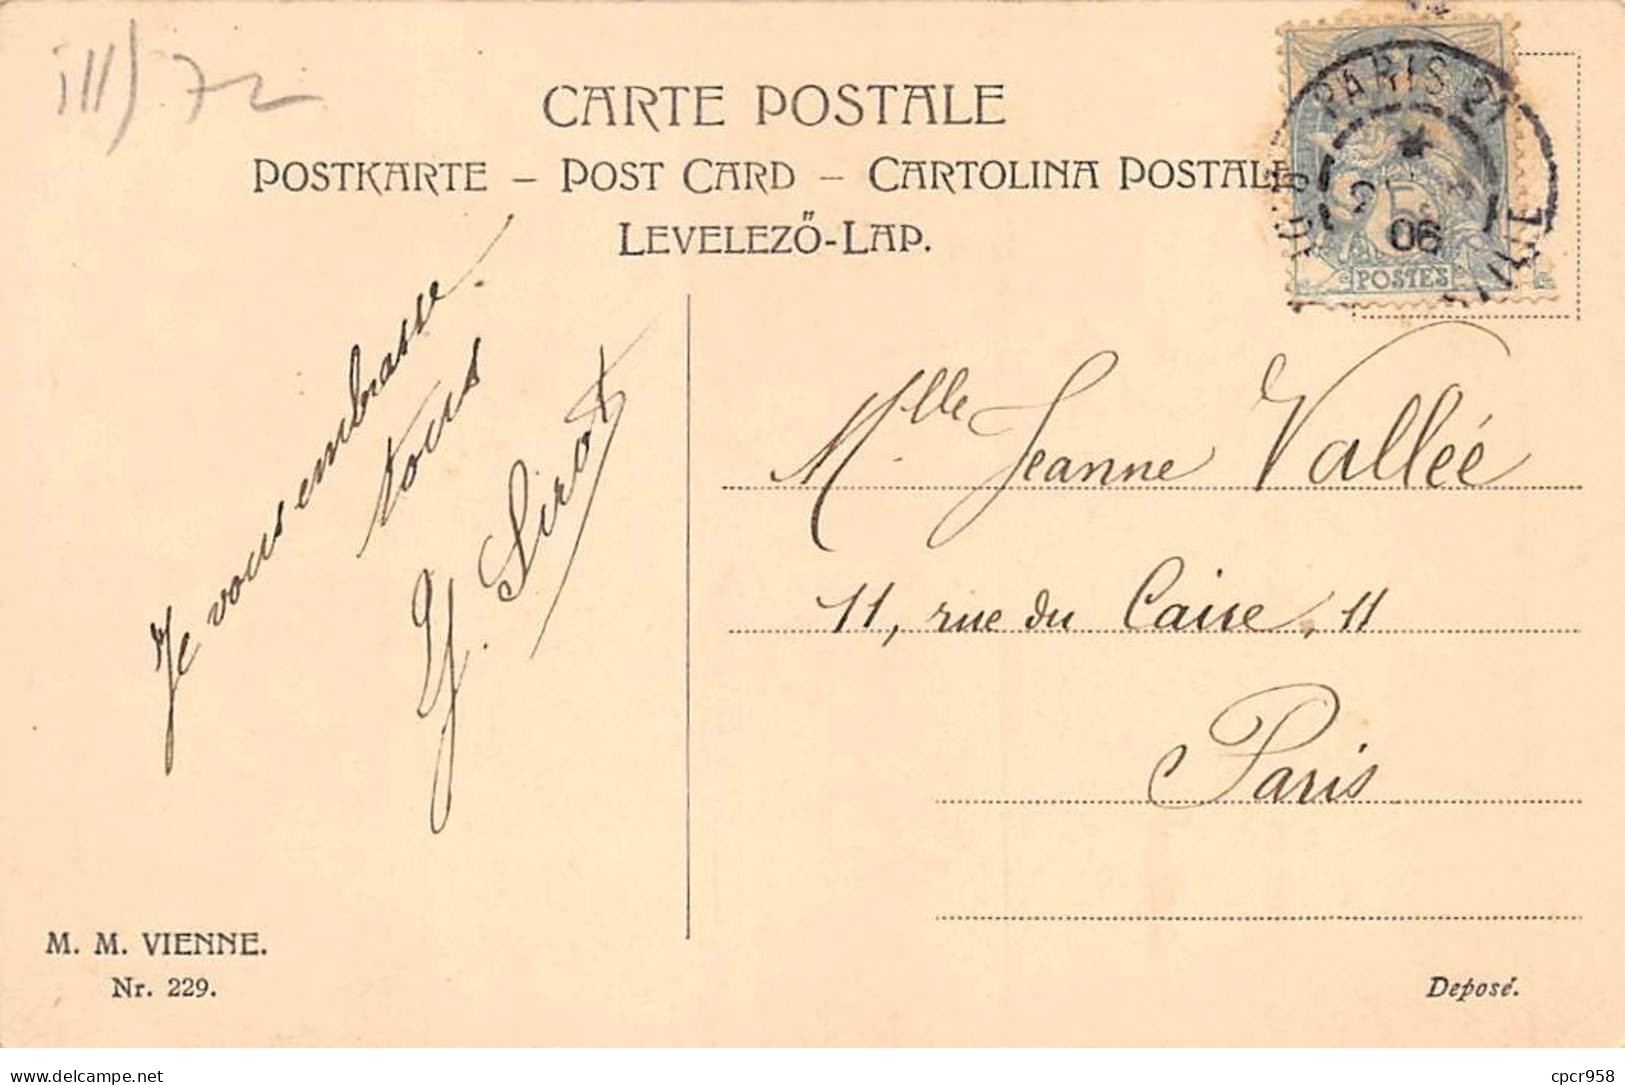 CARTE POSTALE
POSTKARTE – POST CARD – CARTOLINA POSTALE
LEVELEZŐ-LAP.
PARIS 21
06
POSTES
Je vous embrasse
tous
Y. Sirot
Mlle Jeanne Vallée
11, rue du Caire, 11
Paris
M. M. VIENNE.
Nr. 229.
Deposé.
delcampe.net
cpcr958